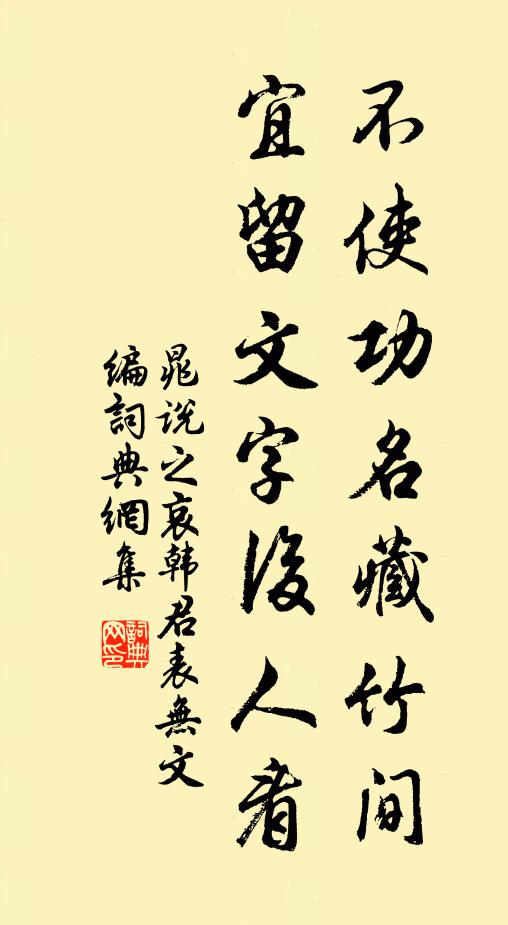 不使功名藏竹间
宜留文字後人看
晁说之哀韩君表無文
编詞典網集
詞典
网印